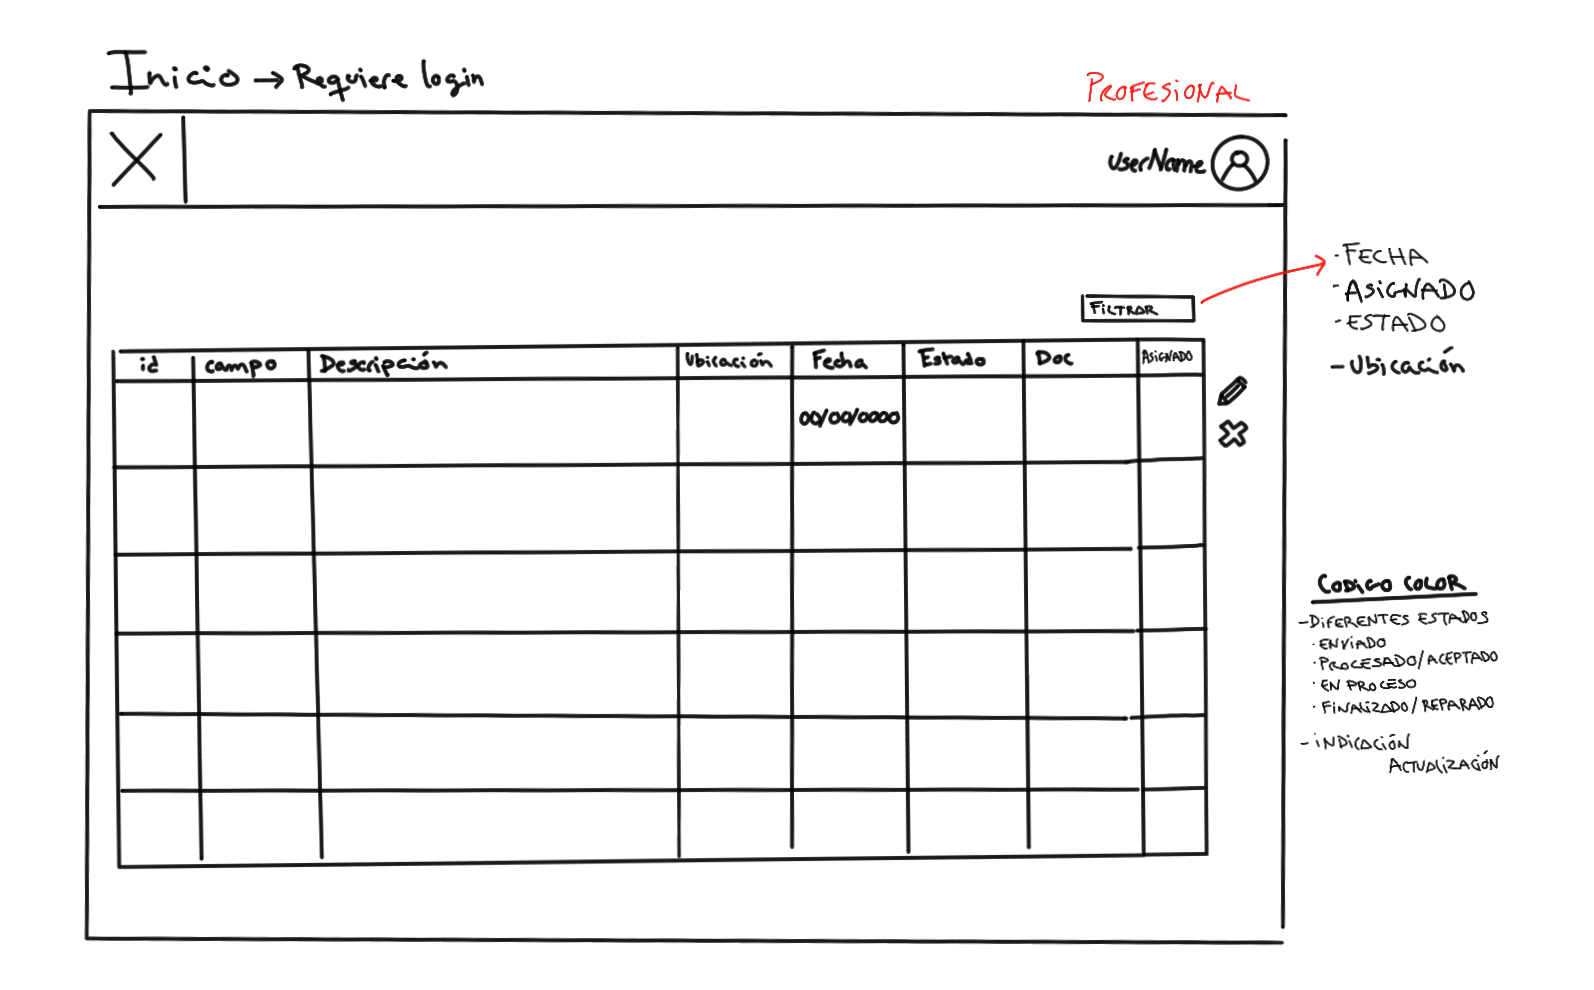 Inicio → Requiere login
PROFESIONAL
UserName
FILTRAR
- FECHA
- ASIGNADO
- ESTADO
- Ubicación
id campo Descripción Ubicación Fecha Estado Doc ASIGNADO
00/00/0000
CODIGO COLOR
- DIFERENTES ESTADOS
· ENVIADO
· PROCESADO/ACEPTADO
· EN PROCESO
· FINALIZADO/REPARADO
- INDICACIÓN
ACTUALIZACIÓN